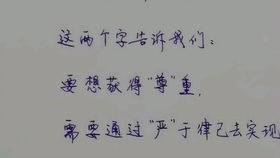 这两个字告诉我们:
要想获得“尊”重,
需要通过“严”于律己去实现